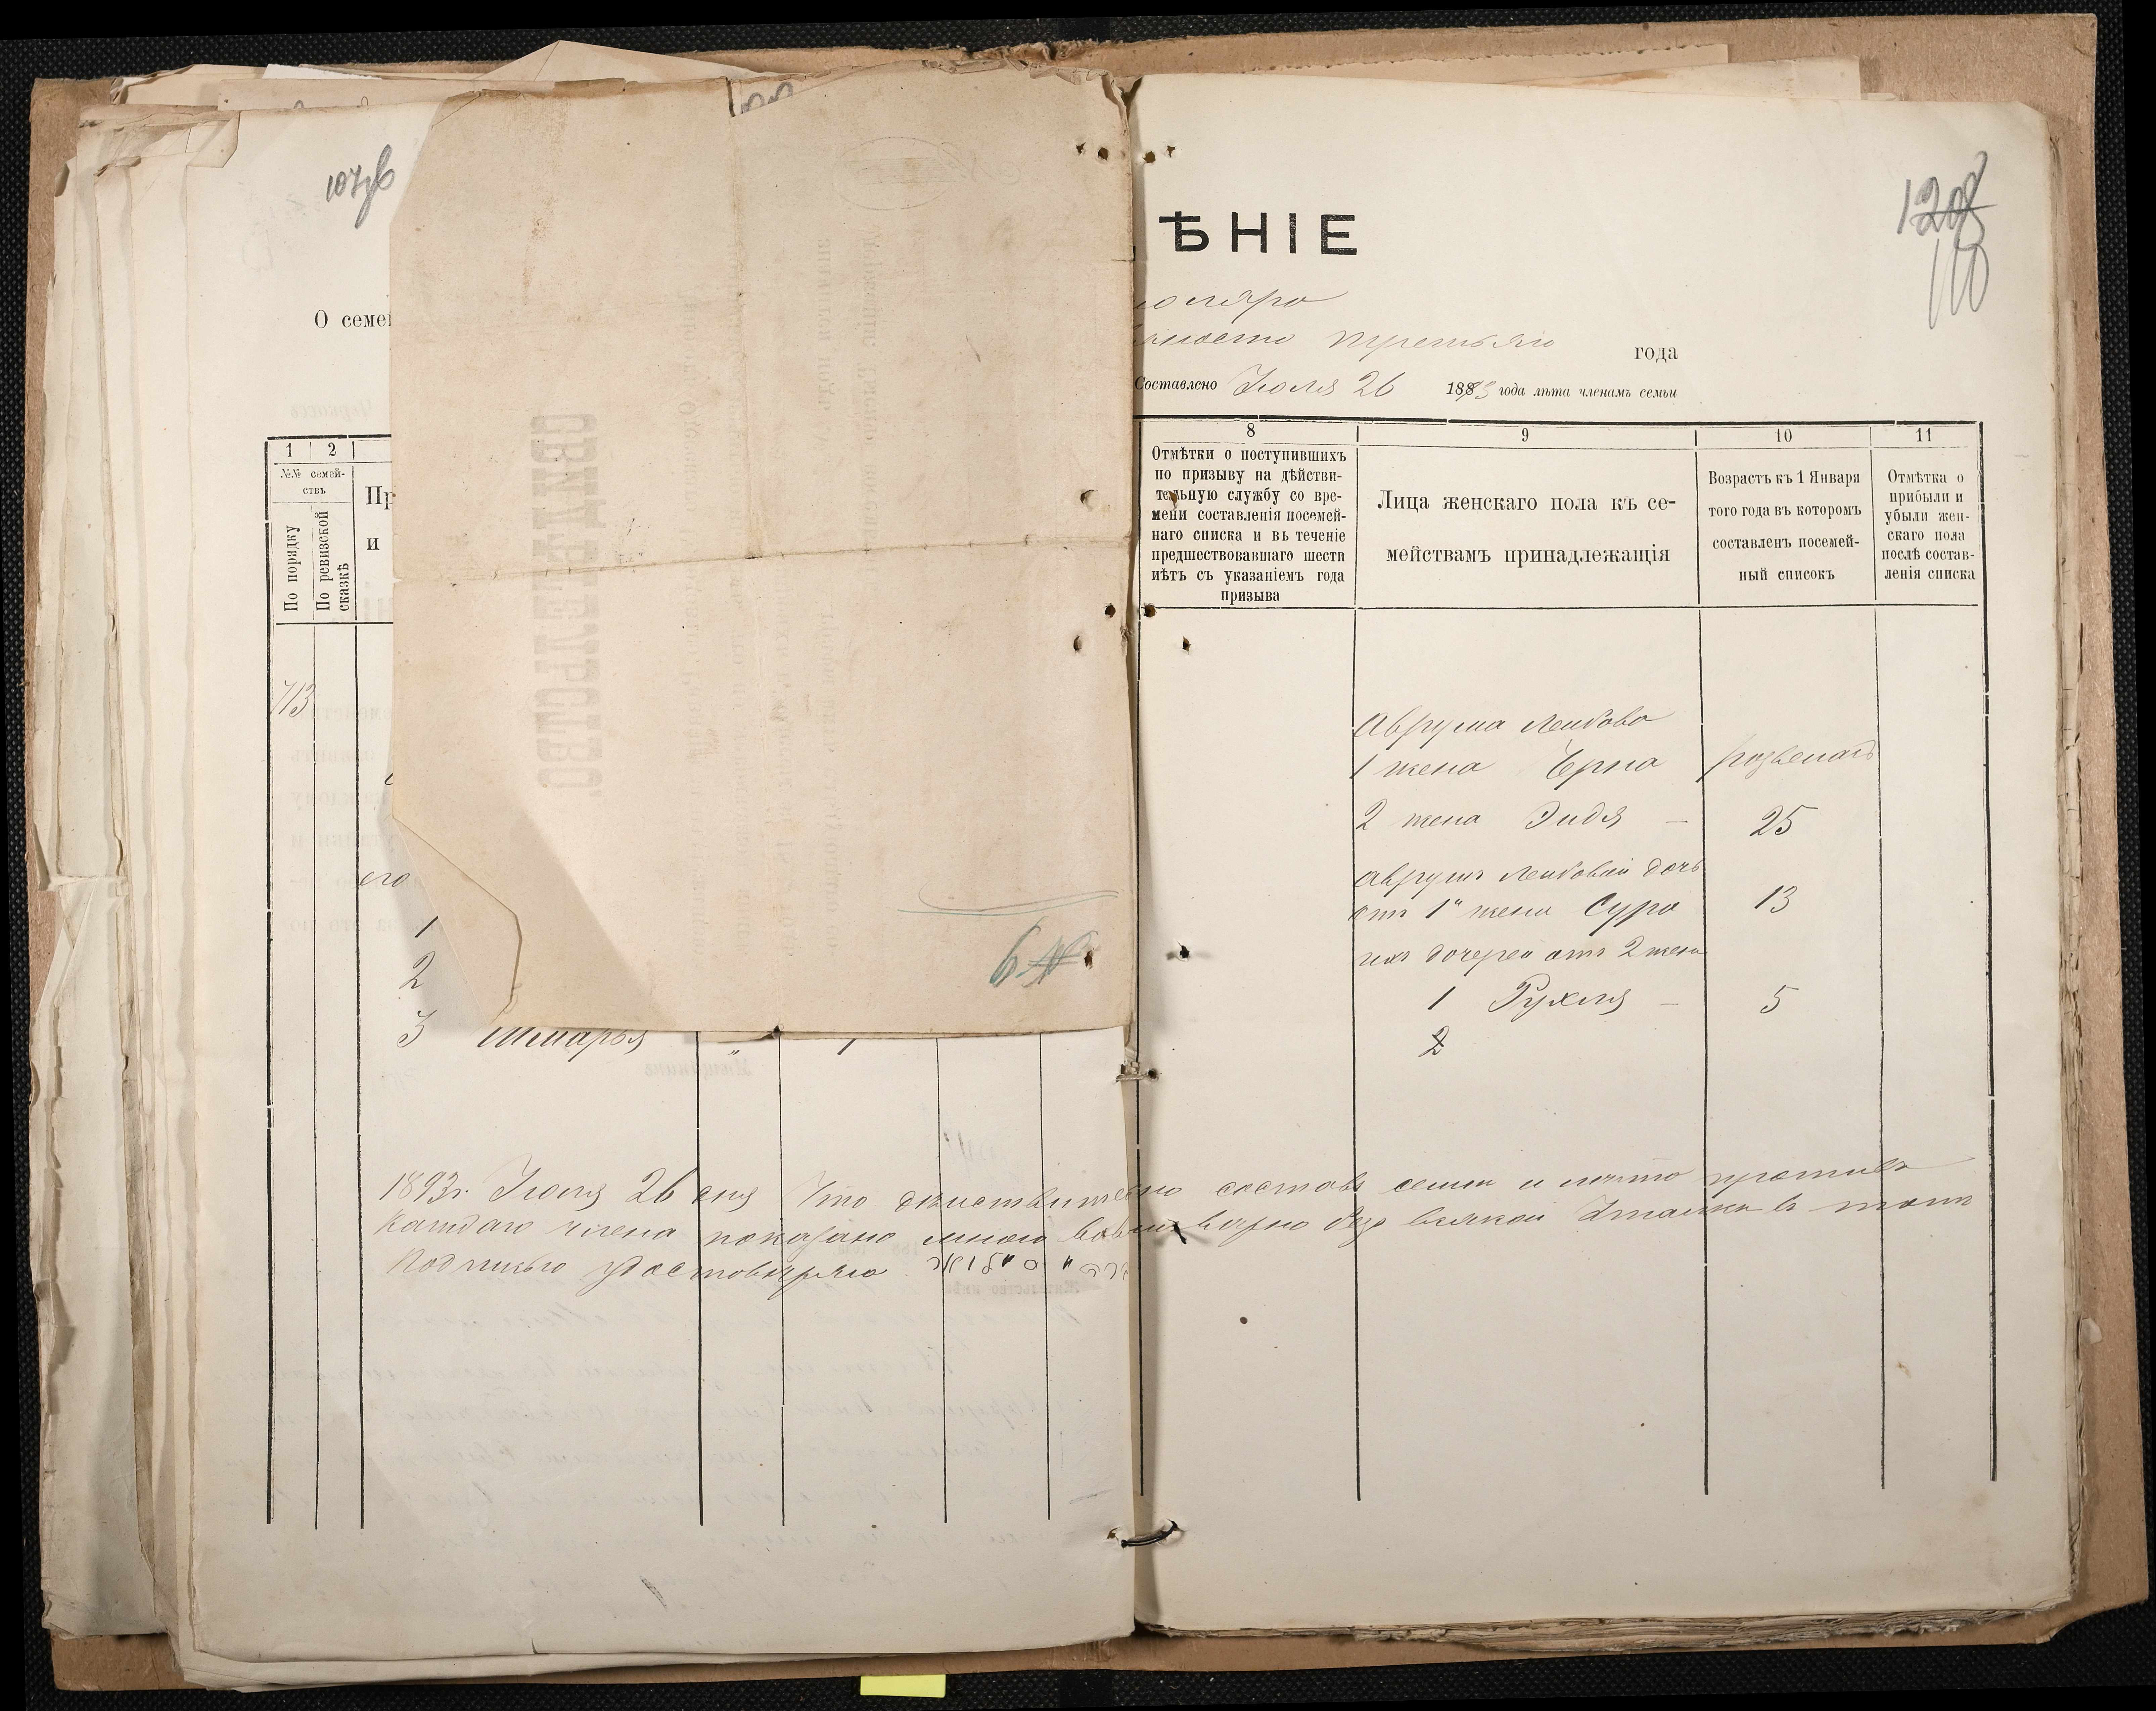 107 об
120
110
ѢНІЕ
О семе
третьяго года
Составлено Іюля 26 1893 года лѣта членамъ семьи
1 2
№№ семей-
ствъ
По порядку
По ревизской
сказкѣ
Пр
и
8 9 10 11
Отмѣтки о поступившихъ
по призыву на дѣйстви-
тельную службу со вре-
мени составленія посемей-
наго списка и въ теченіе
предшествовавшаго шести
лѣтъ съ указаніемъ года
призыва
Лица женскаго пола къ се-
мействамъ принадлежащія
Возрастъ къ 1 Января
того года въ которомъ
составленъ посемей-
ный списокъ
Отмѣтка о
прибыли и
убыли жен-
скаго пола
послѣ состав-
ленія списка
СВИДѢТЕЛЬСТВО
713
Аврума Лейбова
1 жена Ерна
2 жена Эидя – 25
его
Аврумъ Лейбовай дочь
отъ 1й жены Сура 13
ихъ дочерей отъ 2 жены
1 Рухля – 5
2
1
2
3 Шмарья " 1
1893 г. Іюля 26 дня Что дѣйствительно составъ семьи и лѣто противъ
каждаго члена показано мною вѣрно безъ всякой Утайки въ томъ
Подписью удостовѣряю